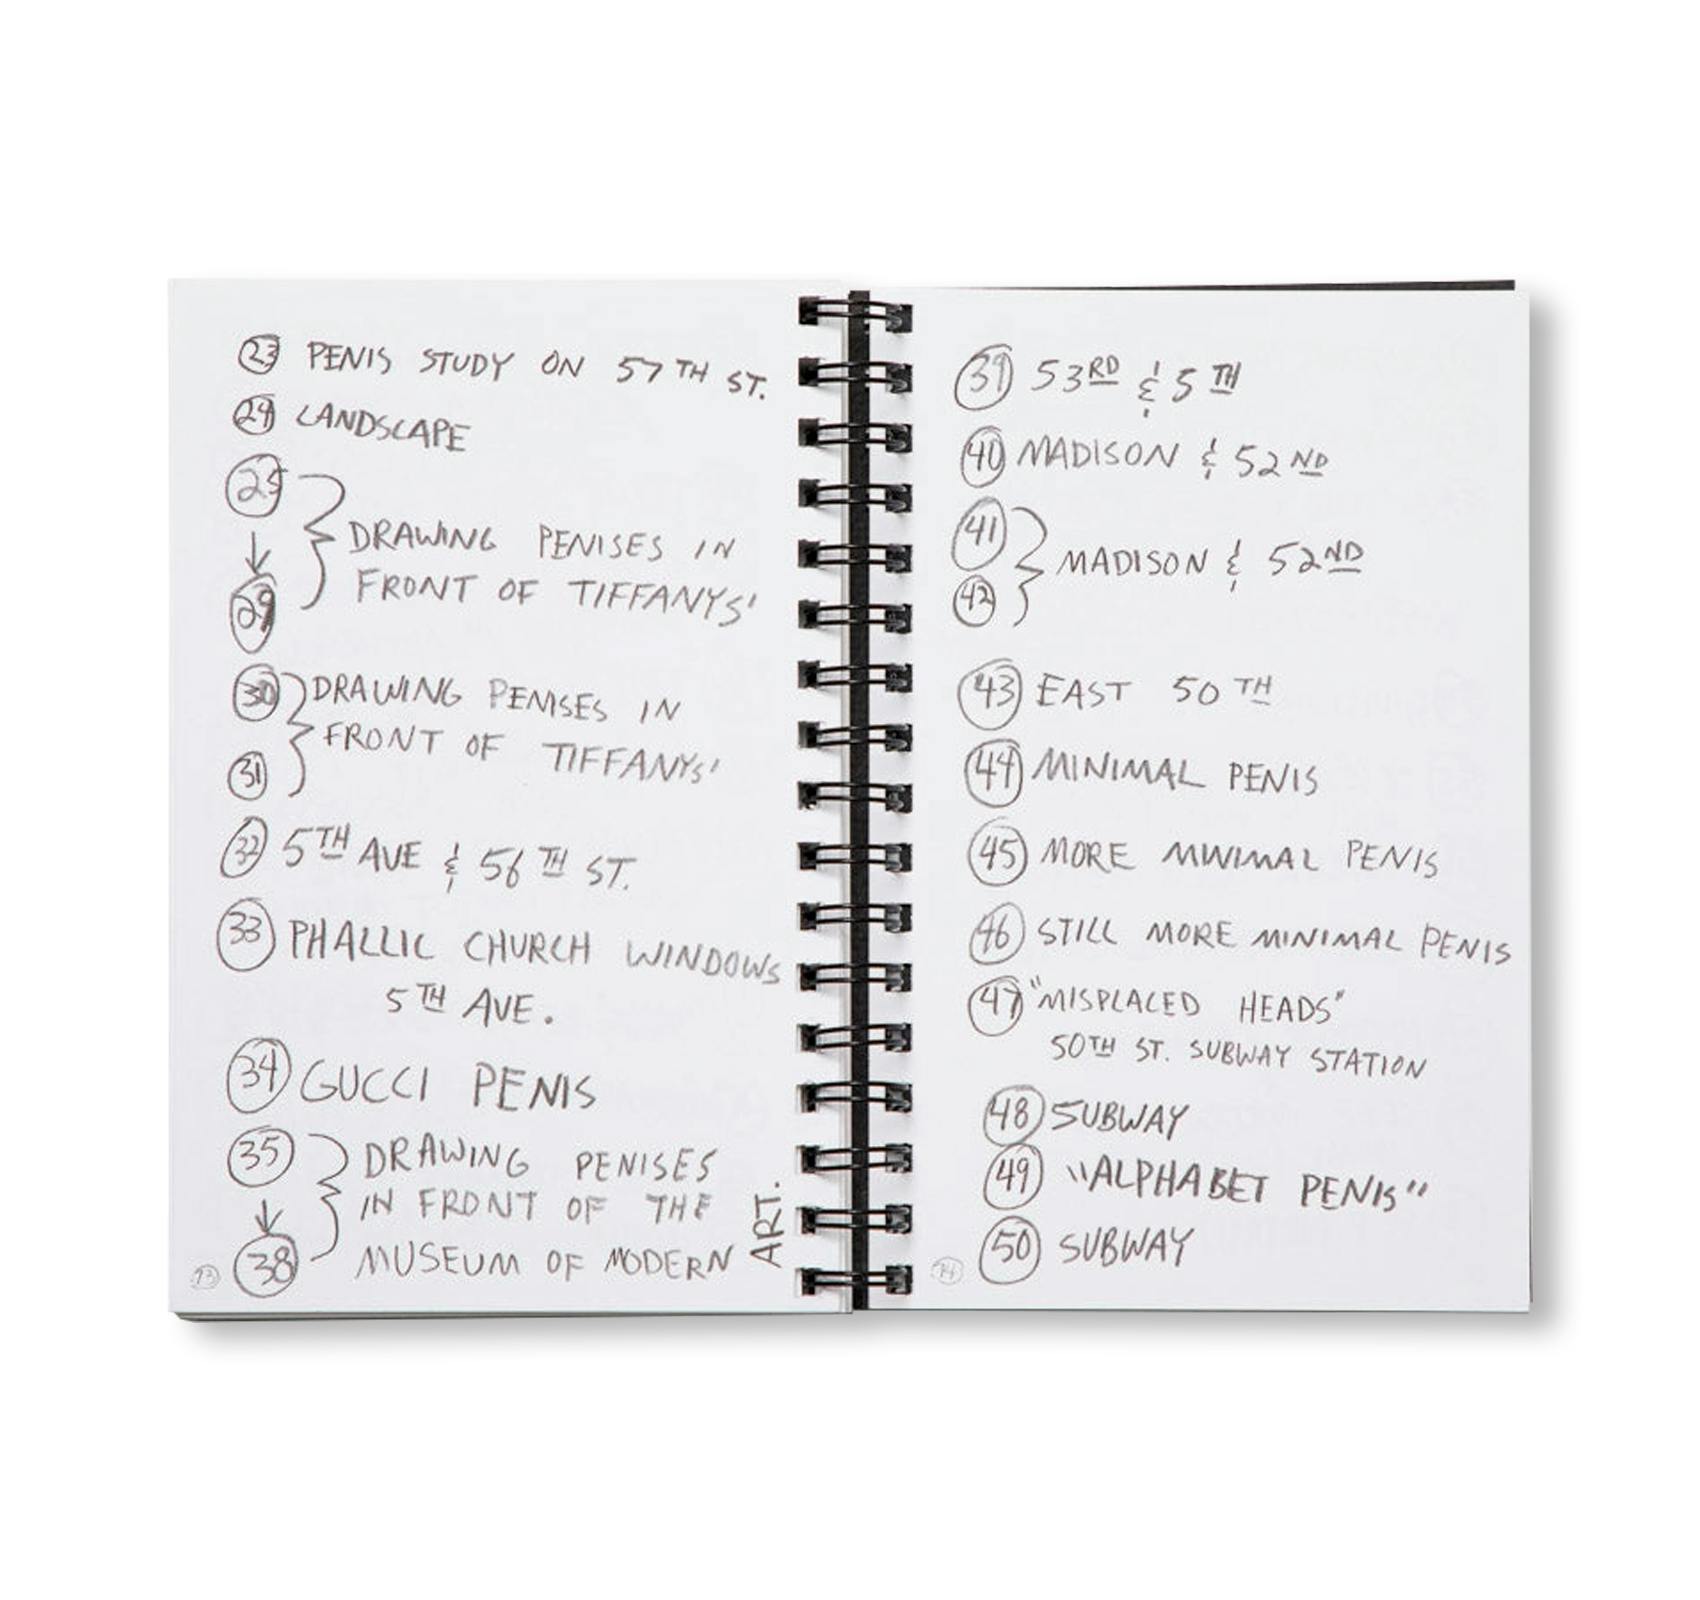 23 PENIS STUDY ON 57TH ST.
24 LANDSCAPE
25
↓
29
DRAWING PENISES IN
FRONT OF TIFFANYS'
30
31
DRAWING PENISES IN
FRONT OF TIFFANYS'
32 5TH AVE & 56TH ST.
33 PHALLIC CHURCH WINDOWS
5TH AVE.
34 GUCCI PENIS
35
↓
38
DRAWING PENISES
IN FRONT OF THE
MUSEUM OF MODERN
ART.
39 53RD & 5TH
40 MADISON & 52ND
41
42
MADISON & 52ND
43 EAST 50TH
44 MINIMAL PENIS
45 MORE MINIMAL PENIS
46 STILL MORE MINIMAL PENIS
47 "MISPLACED HEADS"
50TH ST. SUBWAY STATION
48 SUBWAY
49 "ALPHABET PENIS"
50 SUBWAY